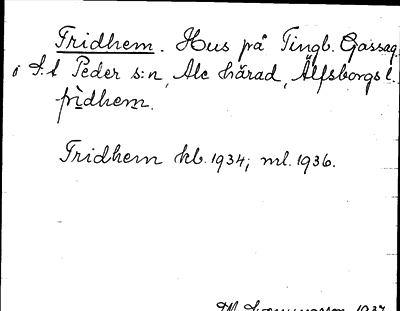 Fridhem. Hus på Tingb. Gossag.
i S:t Peder s:n, Ale härad, Älfsborgs l.
frìdhem.
Fridhem kb. 1934; ml. 1936.
1937